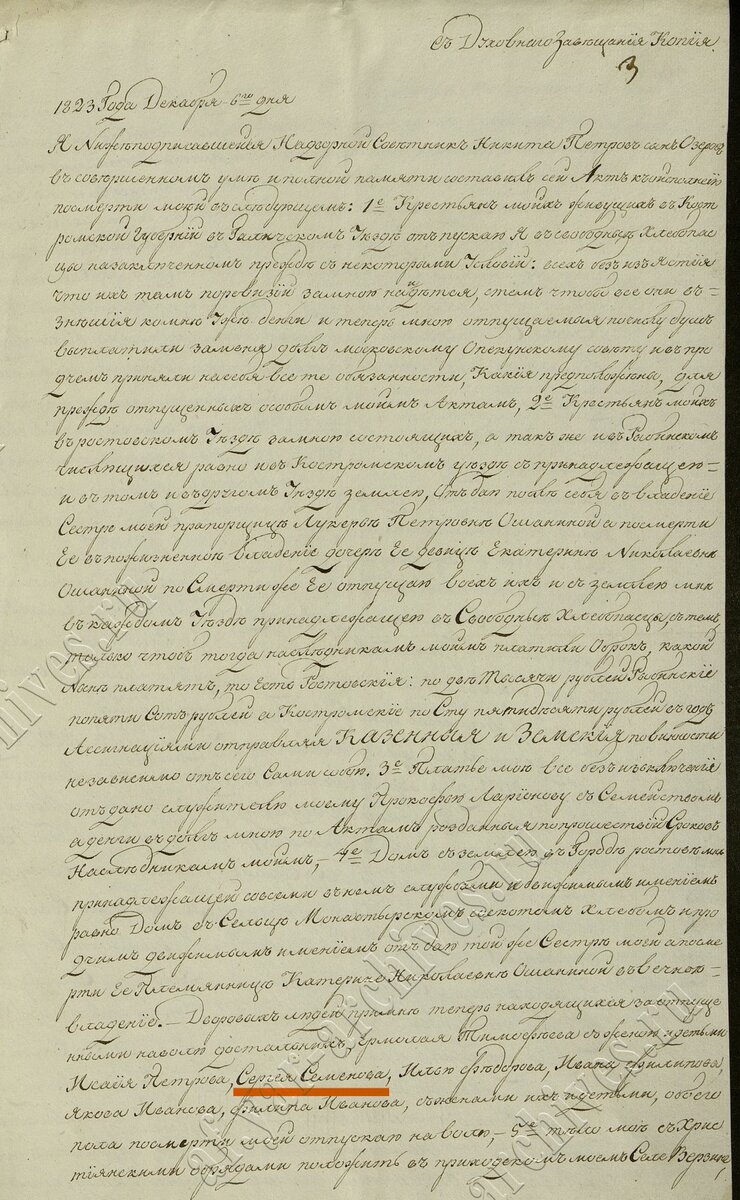 съ Духовнаго Завещанія Копія.
3
1823 Года Декабря 6го дня
Я Нижеподписавшейся Надворной Советникъ Никита Петровъ сынъ Озеровъ
въ совершенномъ уме и полной памяти составилъ сей Актъ къ исполненію
посмерти моей въ следующемъ: 1е Крестьянъ моихъ живущихъ въ Кост
ромской Губерніи въ Галичскомъ Уезде отпускаю Я въ свободные Хлебопаш
цы назаключенномъ прежде съ некоторыми Условіи: всехъ безъ изъятія
что ихъ тамъ поревизіи замною найдется, стемъ чтобы все они въ-
знешія комне деньги и теперь мною отпущаемыя
выплатили заменя долгъ московскому Опекунскому совету и въ про
чемъ приняли насебя все те обязанности, Какія предположены, для
прежде отпущенныхъ особымъ моимъ Актомъ, 2е Крестьянъ моихъ
въ ростовскомъ Уезде замною состоящихъ, а такъ же и въ Рыбинскомъ
числящихся равно и въ Костромскомъ уезде съ принадлежащею-
и въ томъ и въ другомъ Уезде землею, Отдаю после себя въ владеніе
Сестре моей прапорщице Лукерье Петровне Ошаниной а посмерти
Ее въ пожизненное владеніе дочере Ее девице Екатерине Николаевне
Ошаниной по Смерти же Ее отпущаю всехъ ихъ и съ землею мне
въ каждомъ Уезде принадлежащею въ Свободные Хлебопашцы съ темъ,
только чтобъ тогда наследникамъ моимъ платили Оброкъ, какой
Ныне платятъ, то Есть Ростовскія: по две Тысячи рублей Рыбинскіе
попяти Сотъ рублей а Костромскіе по Сту пятидесяти рублей въ годъ
Ассигнаціями отправляя Казенныя и Земскія повинности
независимо отъ сего Сами собою. 3е Платье мое все безъ исключенія
отдано служителю моему Прокофью Ларіонову съ Семействомъ
а денги въ долгъ мною по Актамъ розданныя попрошествіи Сроковъ
Наследникамъ моимъ,- 4е Домъ съ землею въ Городе ростове мне
принадлежащей совсеми въ немъ службами и движимымъ именіемъ
равно Домъ въ Сельце Монастырскомъ соскотомъ Хлебомъ и про
чимъ движимымъ именіемъ отдаю той же Сестре моей а посме
рти Ее Племяннице Катерине Николаевне Ошаниной въ вечное-
владеніе.- Дворовыхъ людей при мне теперь находящихся заотпуще
нными наволю достальныхъ, Ермолая Тимофеева съ женою и детьми
Исаія Петрова, Сергея Семенова, Илью Федорова, Ивана Филипова,
Якова Иванова, Филипа Иванова, съ женами ихъ и детьми, обоего
пола посмерти моей отпускаю на волю,- 5е тело мое съ Хрис
тіянскими обрядами положить въ приходскомъ моемъ Селе
archives.ru
archives.ru
archives.ru